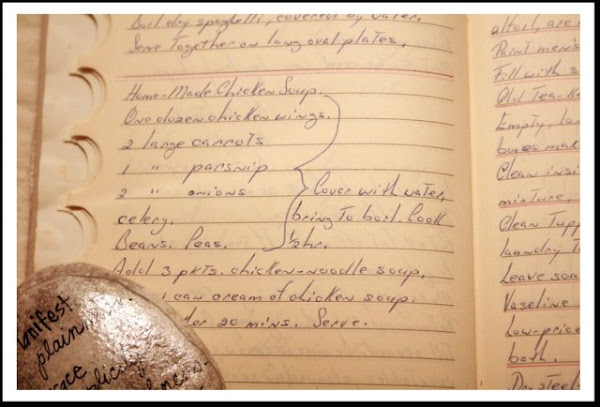 Boil dry spaghetti, covered by water.
Serve together on long oval plates.
Home-Made Chicken Soup.
One dozen chicken wings.
2 large carrots
1 " parsnip
2 " onions
celery.
Beans. Peas.
Cover with water,
bring to boil. Cook
½ hr.
Add 3 pkts. chicken-noodle soup.
1 can cream of chicken soup.
20 mins. Serve.
are
Paint men's
Fill with s
Old Tea-
Empty,
boxes mak
Clean insi
mixture,
Clean Tupp
laundry
Leave soa
Vaseline
Low-price
bath.
plain,